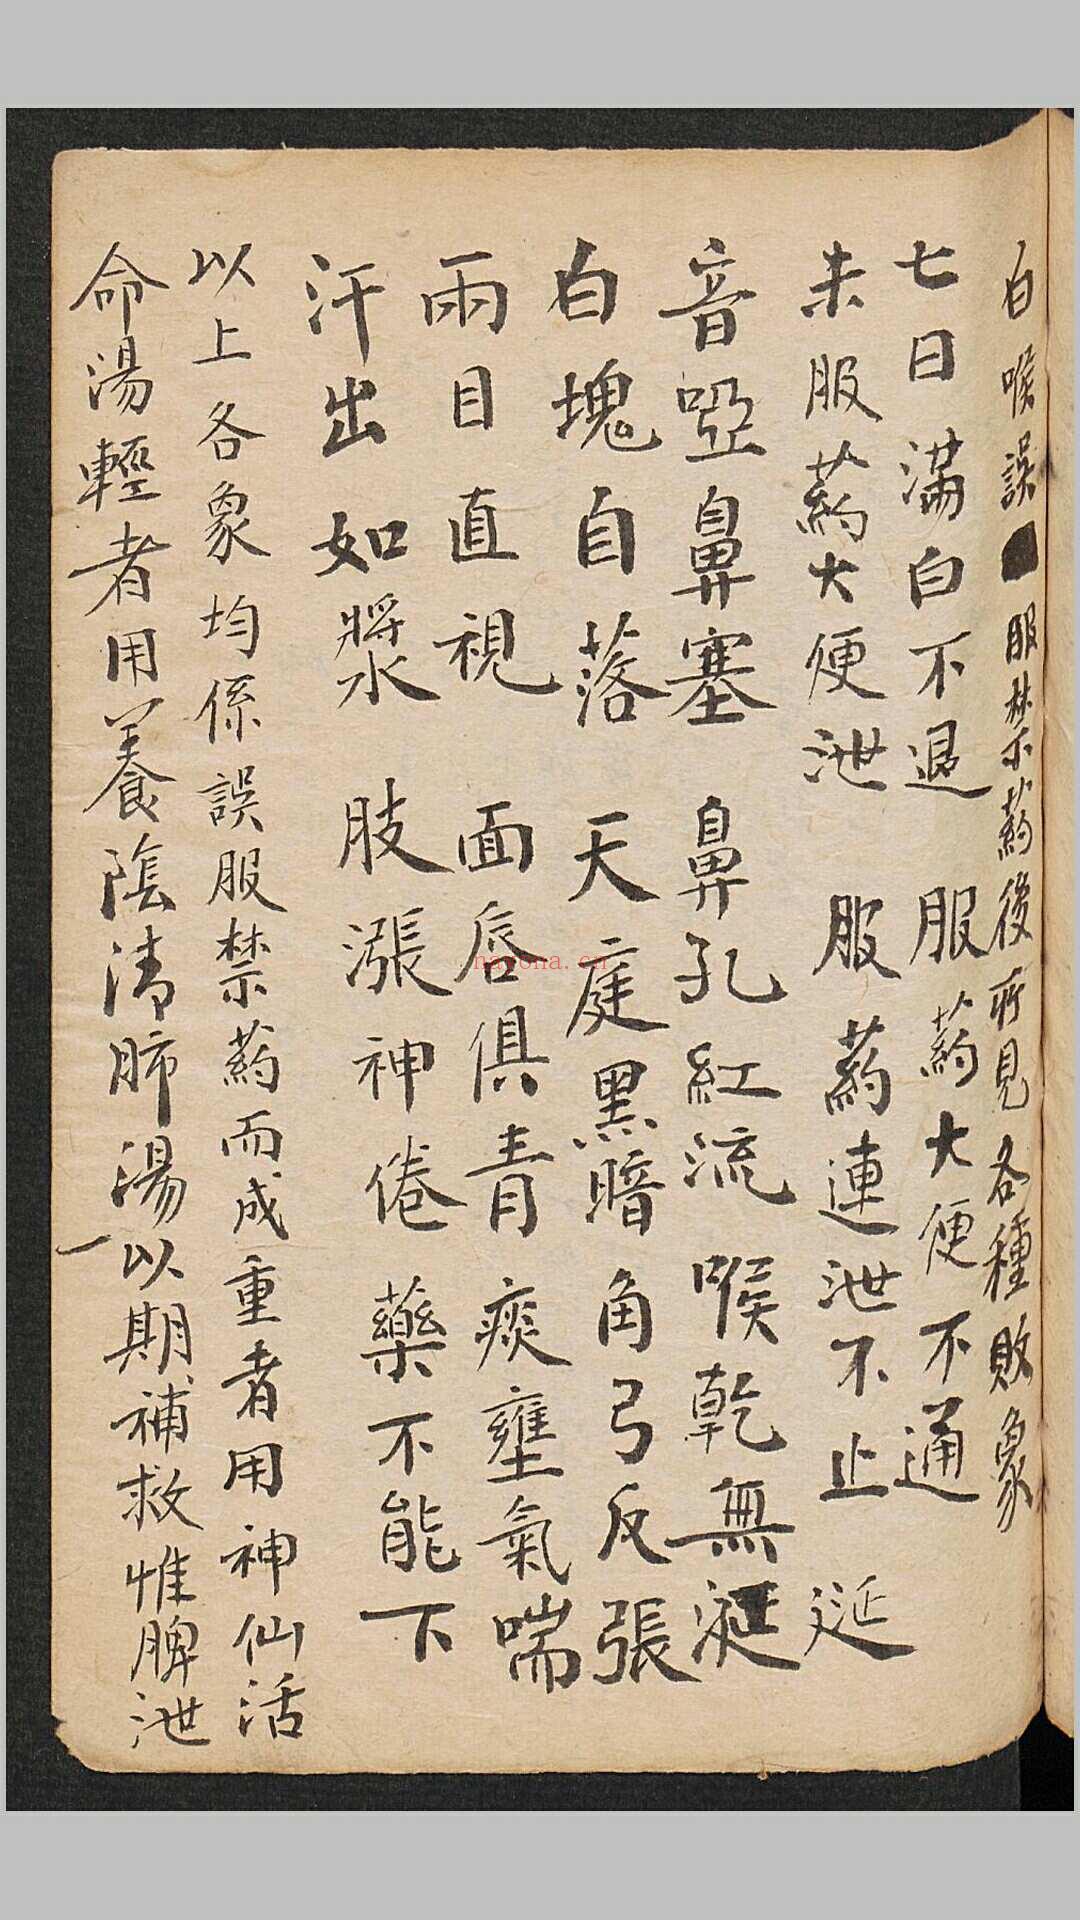 白喉誤服禁葯後所見各種敗象
七日滿白不退 服葯大便不通
未服葯大便泄 服葯連泄不止 涎
音啞鼻塞 鼻孔紅流 喉乾無涎
白塊自落 天庭黑暗 角弓反張
兩目直視 面唇俱青 痰壅氣喘
汗出如漿 肢漲神倦 藥不能下
以上各象均係誤服禁葯而成重者用神仙活
命湯輕者用養陰清肺湯以期補救惟脾泄
nayona.cn